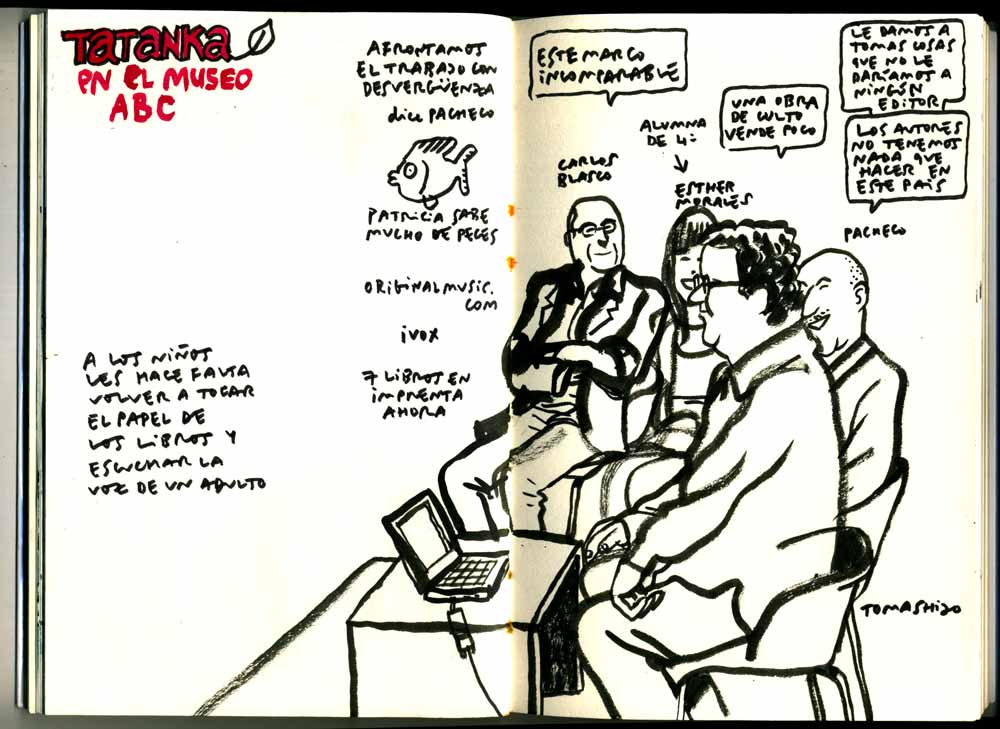 TATANKA
EN EL MUSEO
ABC
AFRONTAMOS
EL TRABAJO CON
DESVERGÜENZA
dice PACHECO
PATRICIA SABE
MUCHO DE PECES
ORIGINALMUSIC.
COM
iVOX
7 LIBROS EN
IMPRENTA
AHORA
A LOS NIÑOS
LES HACE FALTA
VOLVER A TOCAR
EL PAPEL DE
LOS LIBROS Y
ESCUCHAR LA
VOZ DE UN ADULTO
ESTE MARCO
INCOMPARABLE
CARLOS
BLASCO
ALUMNA
DE 4º
ESTHER
MORALES
UNA OBRA
DE CULTO
VENDE POCO
LE DAMOS A
TOMAS COSAS
QUE NO LE
DARÍAMOS A
NINGÚN
EDITOR
LOS AUTORES
NO TENEMOS
NADA QUE
HACER EN
ESTE PAÍS
PACHECO
TOMASHIJO